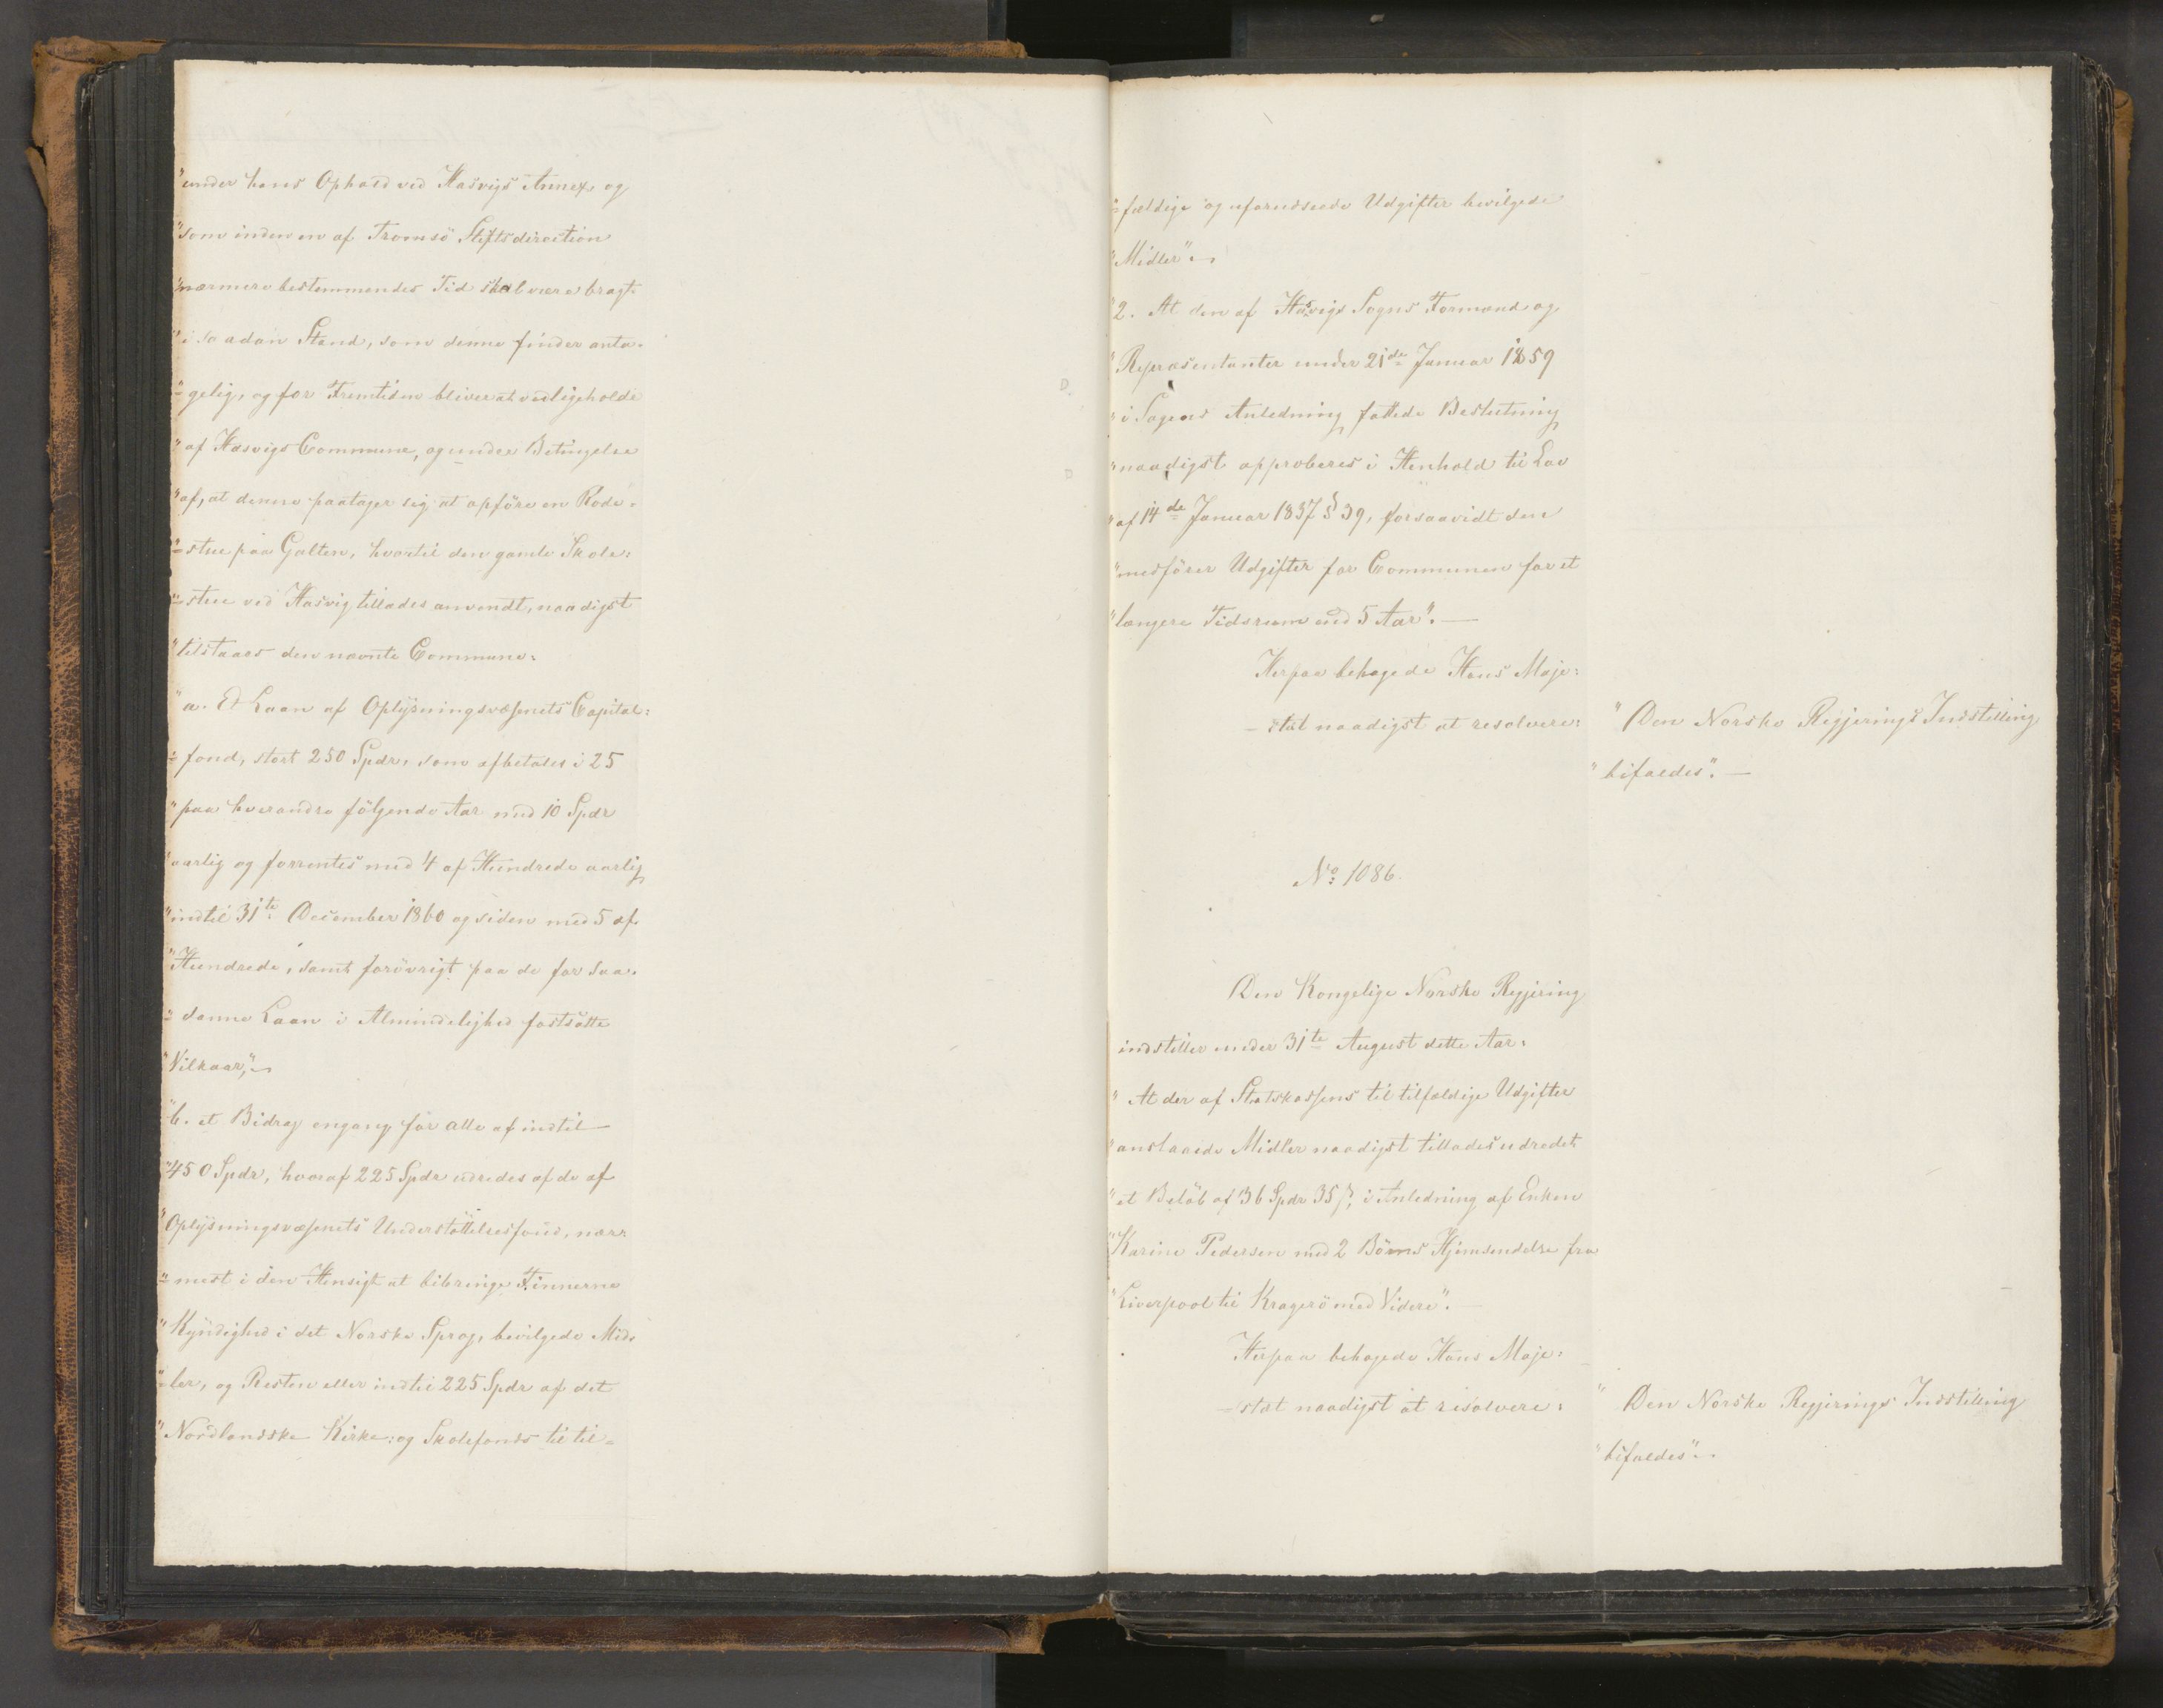 "under hans Ophold ved Hasvigs Annex og
"som inden en af Tromsö Stiftsdirection
"nærmere bestemmendes Tid skal være bragt
"i saadan Stand, som denne finder anta-
"=gelig, og for Fremtiden bliver at vedligeholde
"af Hasvigs Commune, og under Betingelse
"af, at denne paatager sig at opföre en Rode-
"=stue paa Galten, hvortil den gamle Skole=
"=stue ved Hasvig tillades anvendt, naadigst
"tilstaaes den nævnte Commune:
"a. Et Laan af Oplysningsvæsenets Capital=
"=fond, stort 250 Spdr, som afbetales i 25
"paa hverandre fölgende Aar med 10 Spdr
"aarlig og forrentes med 4 af Hundrede aarlig
"indtil 31te December 1860 og siden med 5 af
"Hundrede, samt forövrigt paa de for saa-
"=danne Laan i Almindelighed fastsatte
"Vilkaar,"
"b. et Bidrag engang for alle af indtil
"450 Spdr, hvoraf 225 Spdr udredes af de af
"Oplysningsvæsenets Understöttelsesfond, nær=
"=mest i den Hensigt at bibringe Finnerne
"Kyndighed i det Norske Sprog, bevilgede Mid=
"=ler, og Resten eller indtil 225 Spdr af det
"Nordlandske Kirke= og Skolefonds til til=
"=fældige og uforudseede Udgifter bevilgede
"Midler".
"2. At den af Hasvigs Sogns Formænd og
"Repræsentanter under 21de Januar 1859
"i Sagens Anledning fattede Beslutning
"naadigst approberes i Henhold til Lov
"af 14de Januar 1837 § 39, forsaavidt den
"medförer Udgifter for Communen for et
"længere Tidsrum end 5 Aar". —
Herpaa behagede Hans Maje=
=stæt naadigst at resolvere:
"Den Norske Regjerings Indstilling
"bifaldes". —
No 1086.
Den Kongelige Norske Regjering
indstiller under 31te August dette Aar:
"At der af Statskassens til tilfældige Udgifter
"anslaaede Midler naadigst tillades udredet
"et Belöb af 36 Spdr 35 ß, i Anledning af Enken
"Karine Pedersen med 2 Börns Hjemsendelse fra
"Liverpool til Kragerö med Videre". —
Herpaa behagede Hans Maje=
=stæt naadigst at resolvere:
"Den Norske Regjerings Indstilling
"bifaldes".